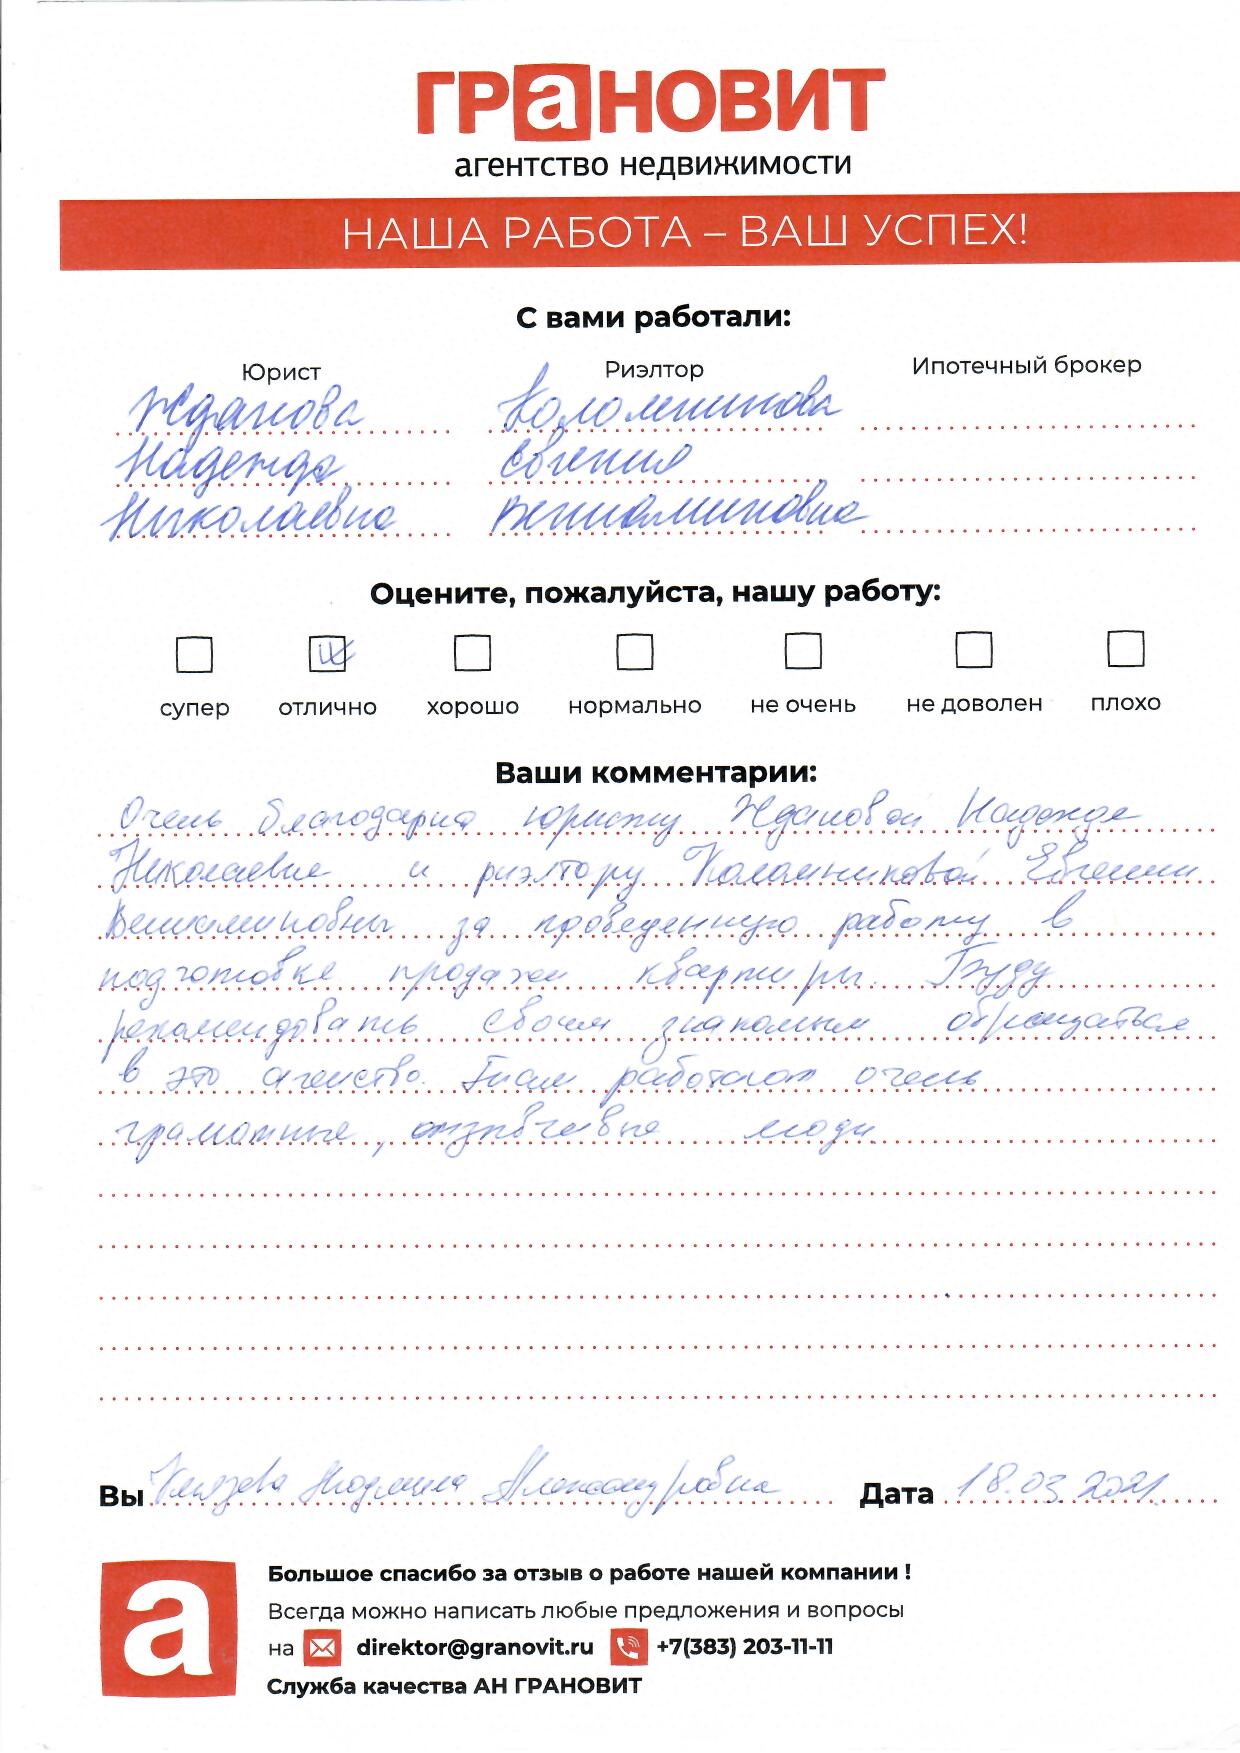 ГРаНОВИТ
агентство недвижимости
НАША РАБОТА – ВАШ УСПЕХ!
С вами работали:
Юрист Риэлтор Ипотечный брокер
Жданова Коломникова
Надежда Евгения
Николаевна Вениаминовна
Оцените, пожалуйста, нашу работу:
супер отлично хорошо нормально не очень не доволен плохо
Ваши комментарии:
Очень благодарна юристу Ждановой Надежде
Николаевне и риэлтору Коломниковой Евгении
Вениаминовны за проведенную работу в
подготовке продажи квартиры. Буду
рекомендовать своим знакомым обращаться
в это агенство. Там работают очень
грамотные, отзывчивые люди
Вы Князева Людмила Александровна Дата 18.03.2021
а
Большое спасибо за отзыв о работе нашей компании !
Всегда можно написать любые предложения и вопросы
на direktor@granovit.ru +7(383) 203-11-11
Служба качества АН ГРАНОВИТ